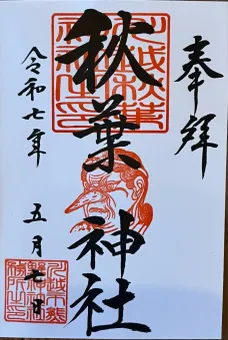 奉拝
秋葉神社
令和七年
五月七日